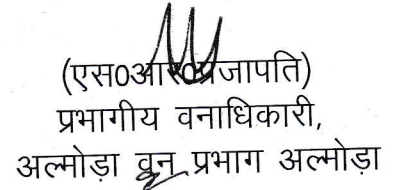 (एस0आर0प्रजापति)
प्रभागीय वनाधिकारी,
अल्मोड़ा वन प्रभाग अल्मोड़ा